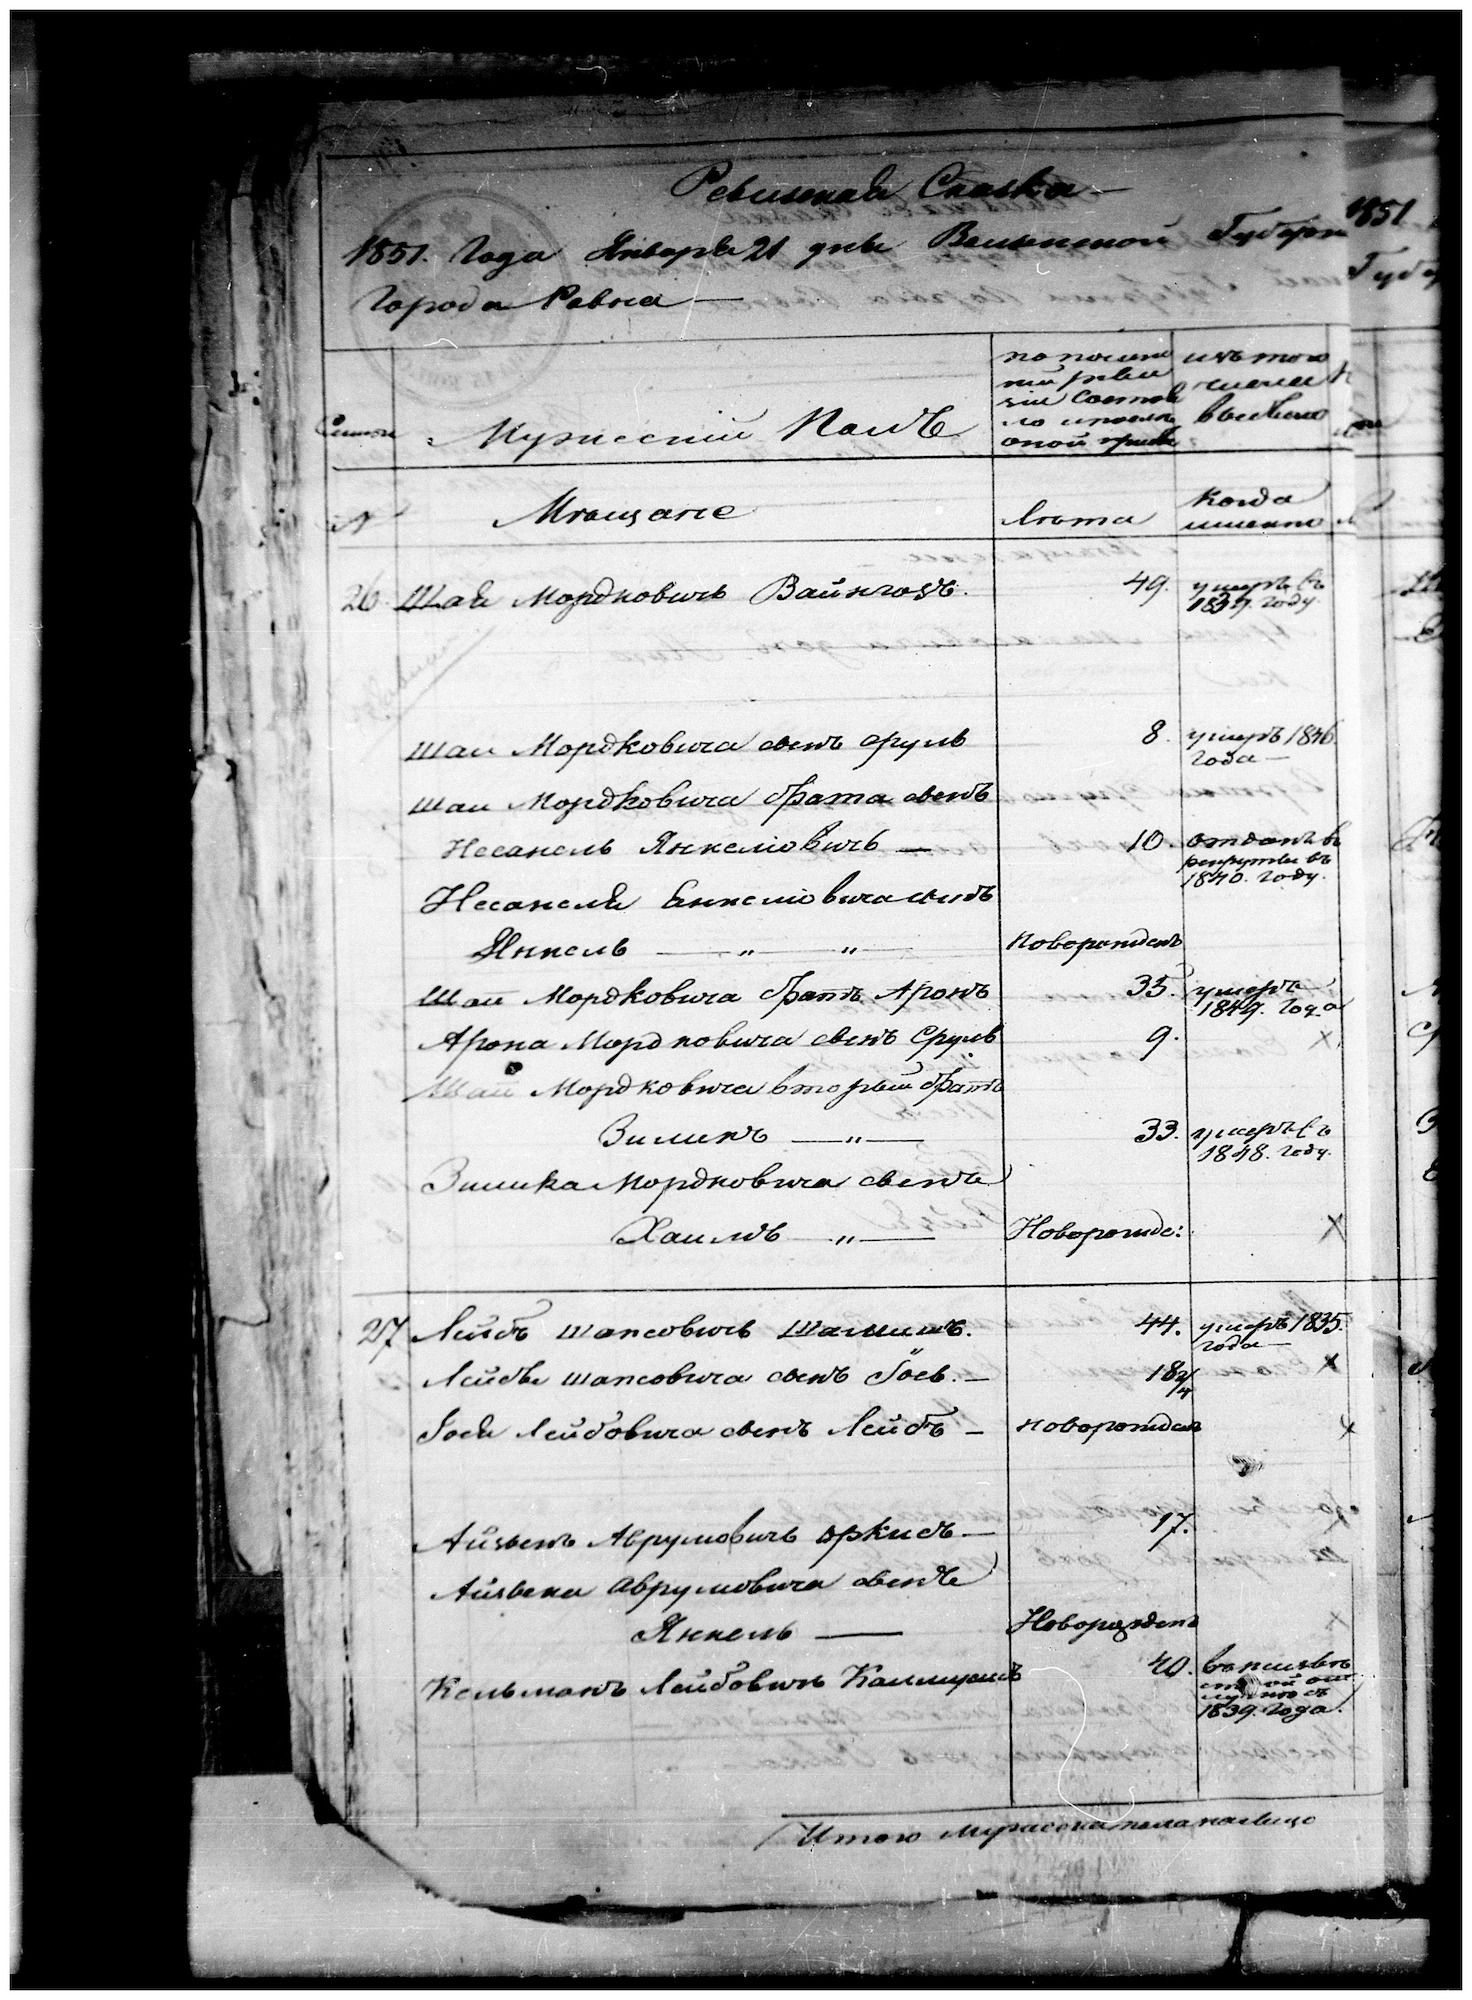 Ревизская Сказка
1851. Года Января 21 дня Волынской Губерн
Города Ровна
Мужеский Полъ
по послед
ней реви
зіи состоя
ло и после
оной прибы
изъ того
числа
выбыло
Семьи
№
Мѣщане
Лѣта
Когда
именно
26 Шая Мордковичь Вайнгозъ. 49. умеръ въ
1837. году.
Шаи Мордковича сынъ Сруль 8. умеръ 1846.
года
Шаи Мордковича брата сынъ
Несанель Янкеліовичь 10. отданъ въ
рекруты въ
1840. году.
Несанеля Енкеліовича сынъ
Янкель — " — " новорожденъ
Шаи Мордковича братъ Аронъ 35. умеръ
1849. года
Арона Мордковича сынъ Сруль 9. х
Шаи Мордковича вторый братъ
Зимикъ — " — 33. умеръ въ
1848. году.
Зимика Мордковича сынъ
Хаимъ — " — Новорожде: х
27 Лейбъ Шапсовичь Шамишъ. 44. умеръ 1835.
года
Лейбы Шапсовича сынъ Іось. — 18 2/4 х
Іося Лейбовича сынъ Лейбъ — новорожденъ х
Айзыкъ Аврумовичь Оркисъ — 17.
Айзыка Аврумовича сынъ
Янкель — Новорожденъ
Кельманъ Лейбовичь 40.
1839. года.
Итого мужеска пола налицо
1851
Губер